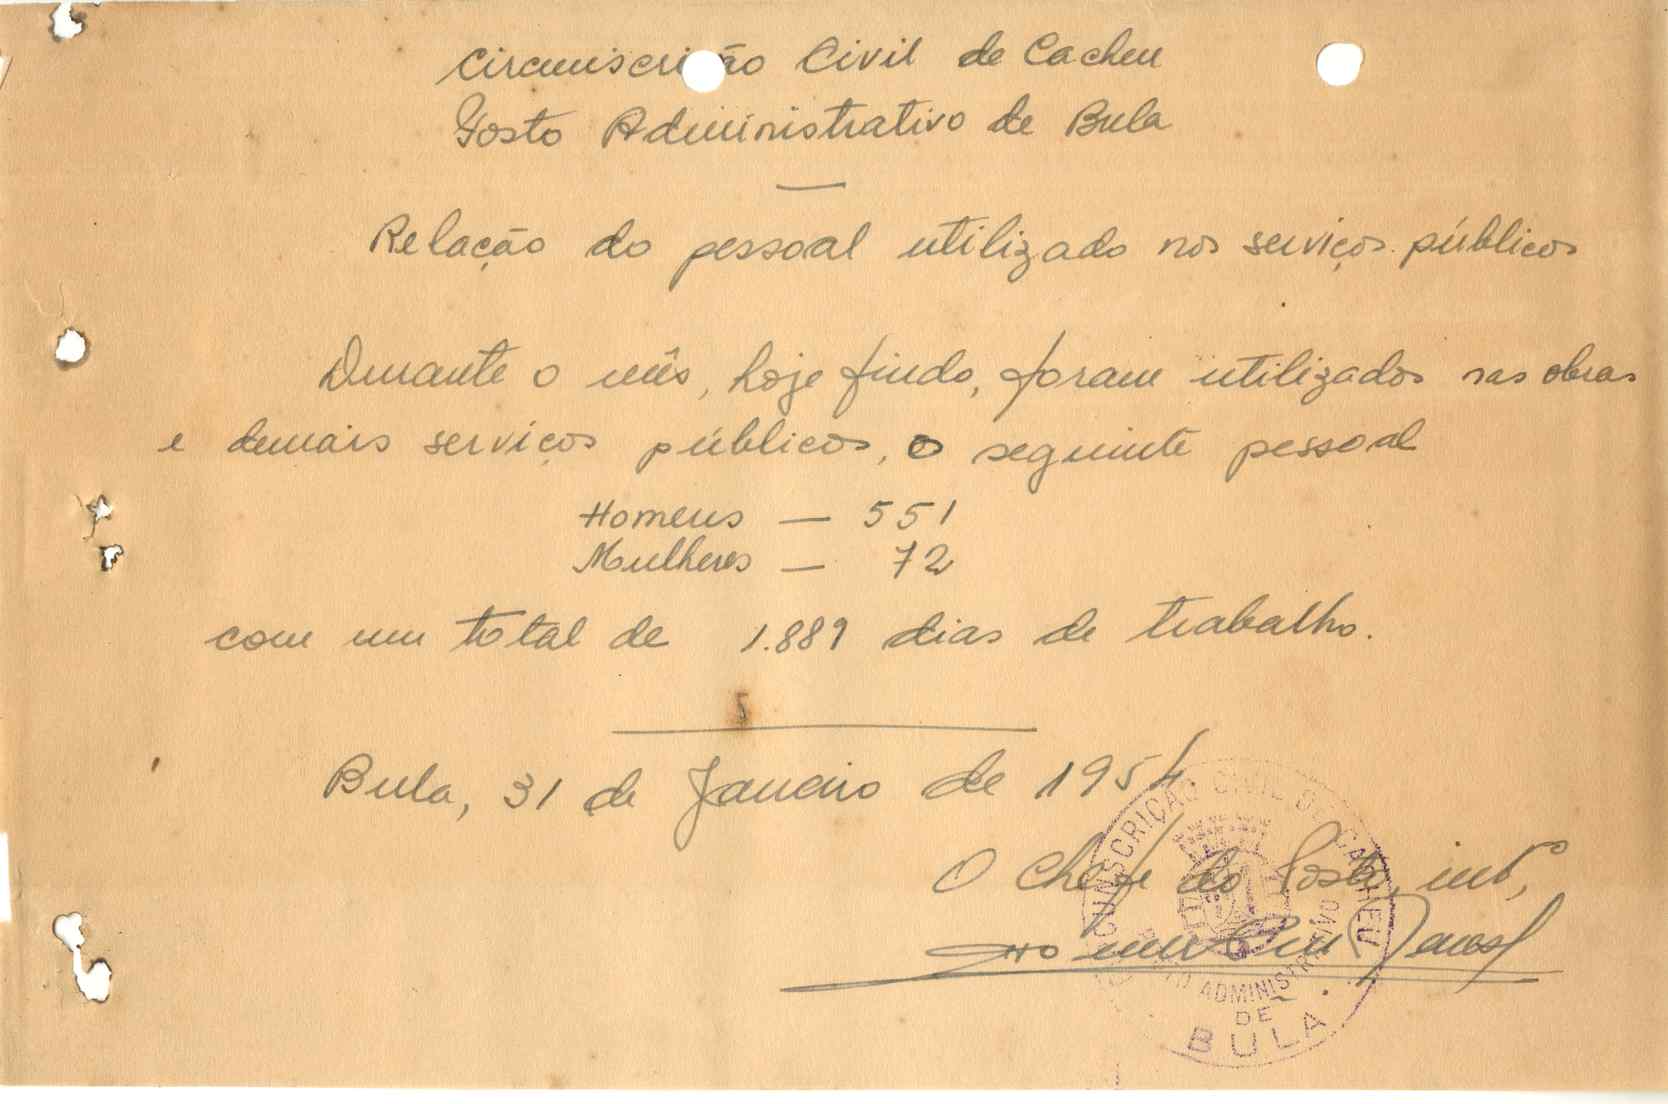 Circunscrição Civil de Cacheu
Posto Administrativo de Bula
Relação do pessoal utilizado nos serviços públicos
Durante o mês, hoje findo, foram utilizados nas obras
e demais serviços públicos, o seguinte pessoal
Homens — 551
Mulheres — 72
com um total de 1.889 dias de trabalho.
Bula, 31 de Janeiro de 1954
O Chefe do Posto, intº,
CIRCUNSCRIÇÃO CIVIL DE CACHEU
POSTO ADMINISTRATIVO
DE
BULA